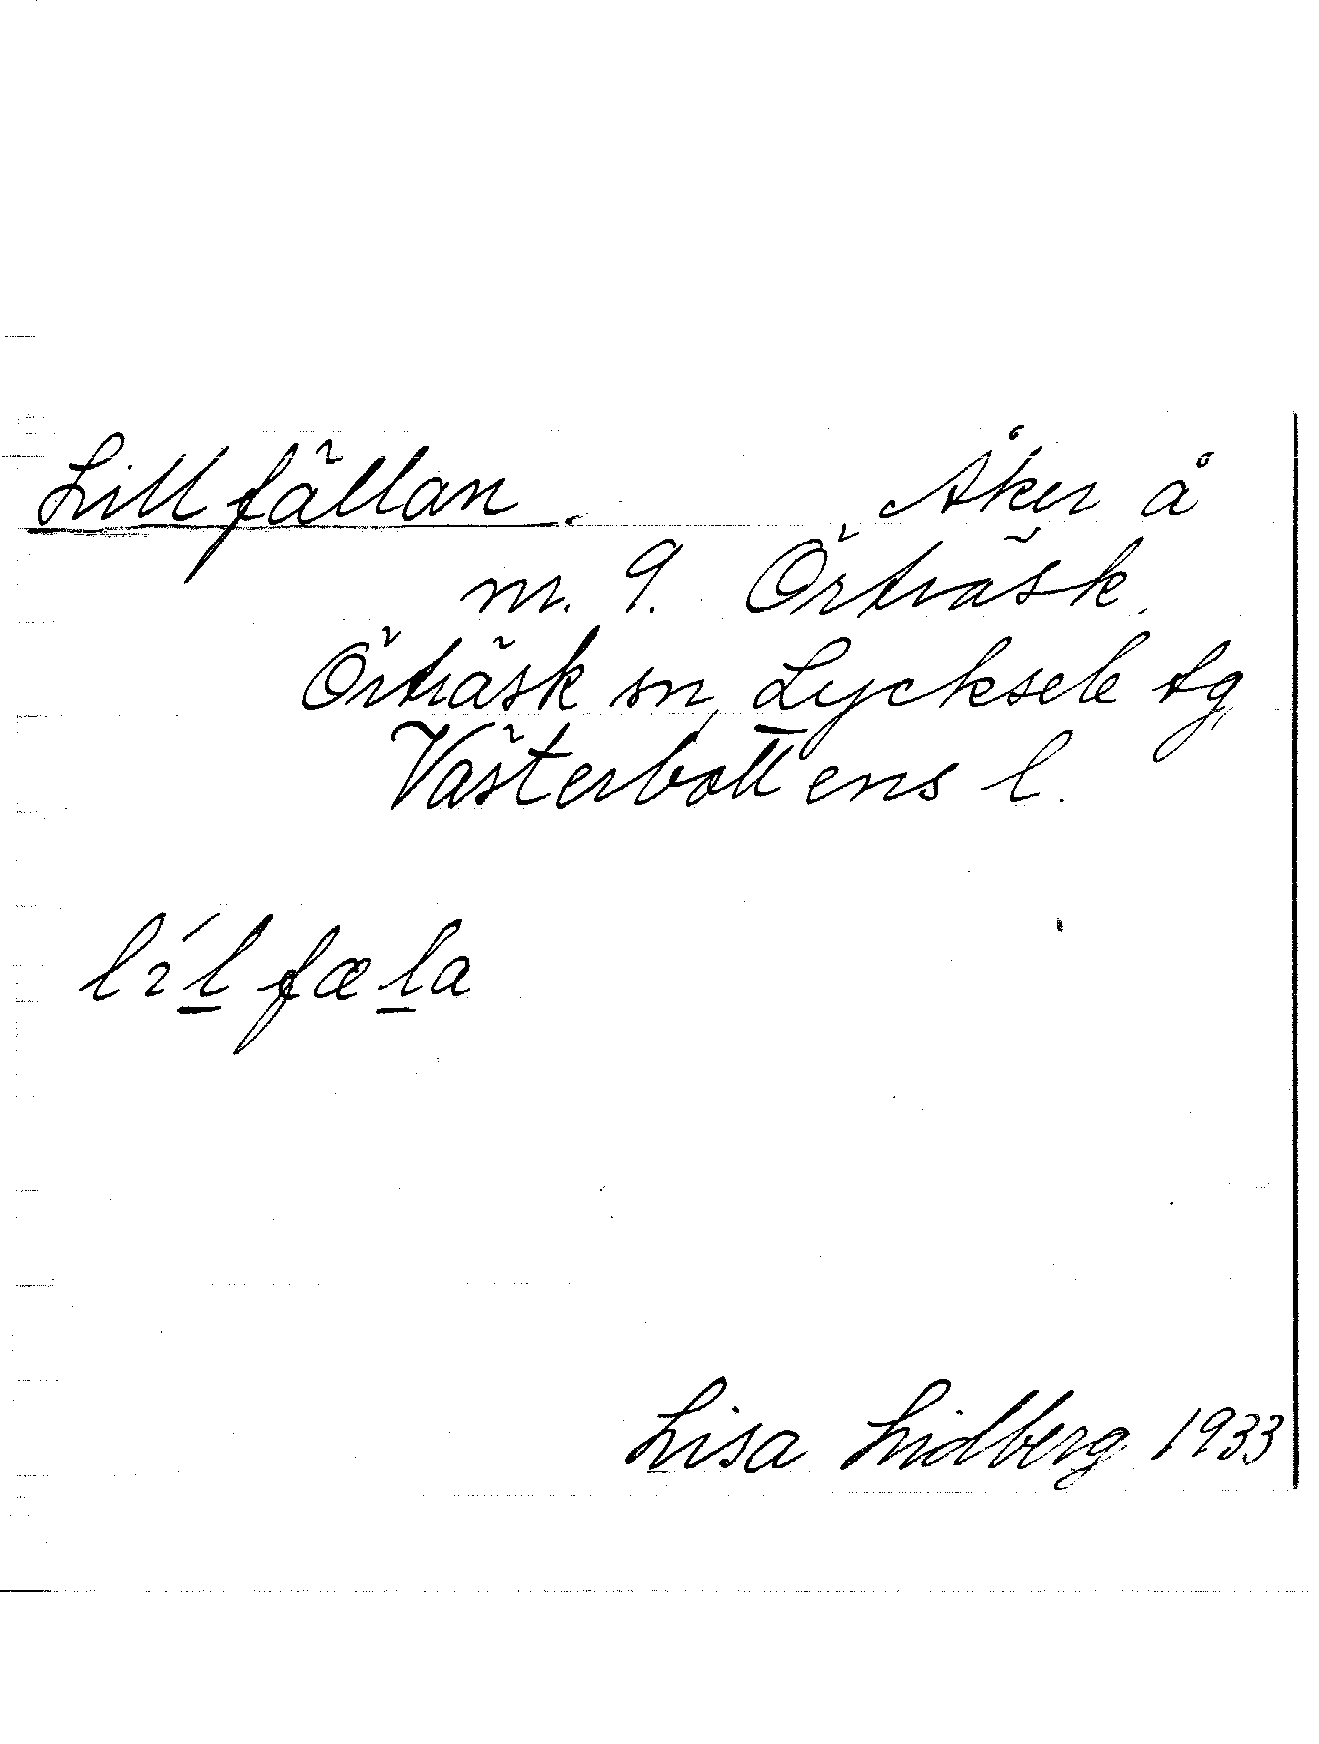 Lillfällan. Åker å
nr. 9. Örträsk.
Örträsk sn, Lycksele tg,
Västerbottens l.
lílfæla
Lisa Lidberg 1933